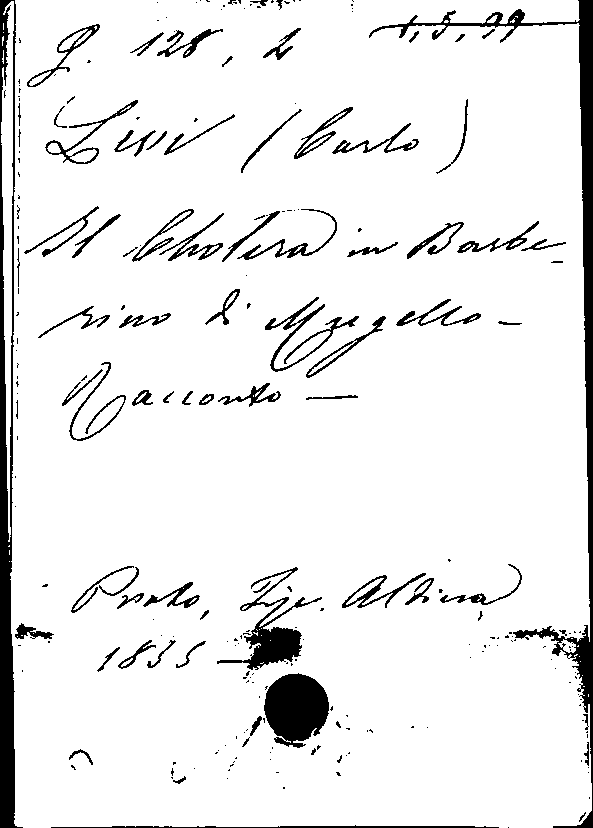 g. 128, 2 1, 5, 99
Livi (Carlo)
Il Cholera in Barbe-
rino di Mugello -
Racconto —
Prato, Tip. Aldina,
1855 —